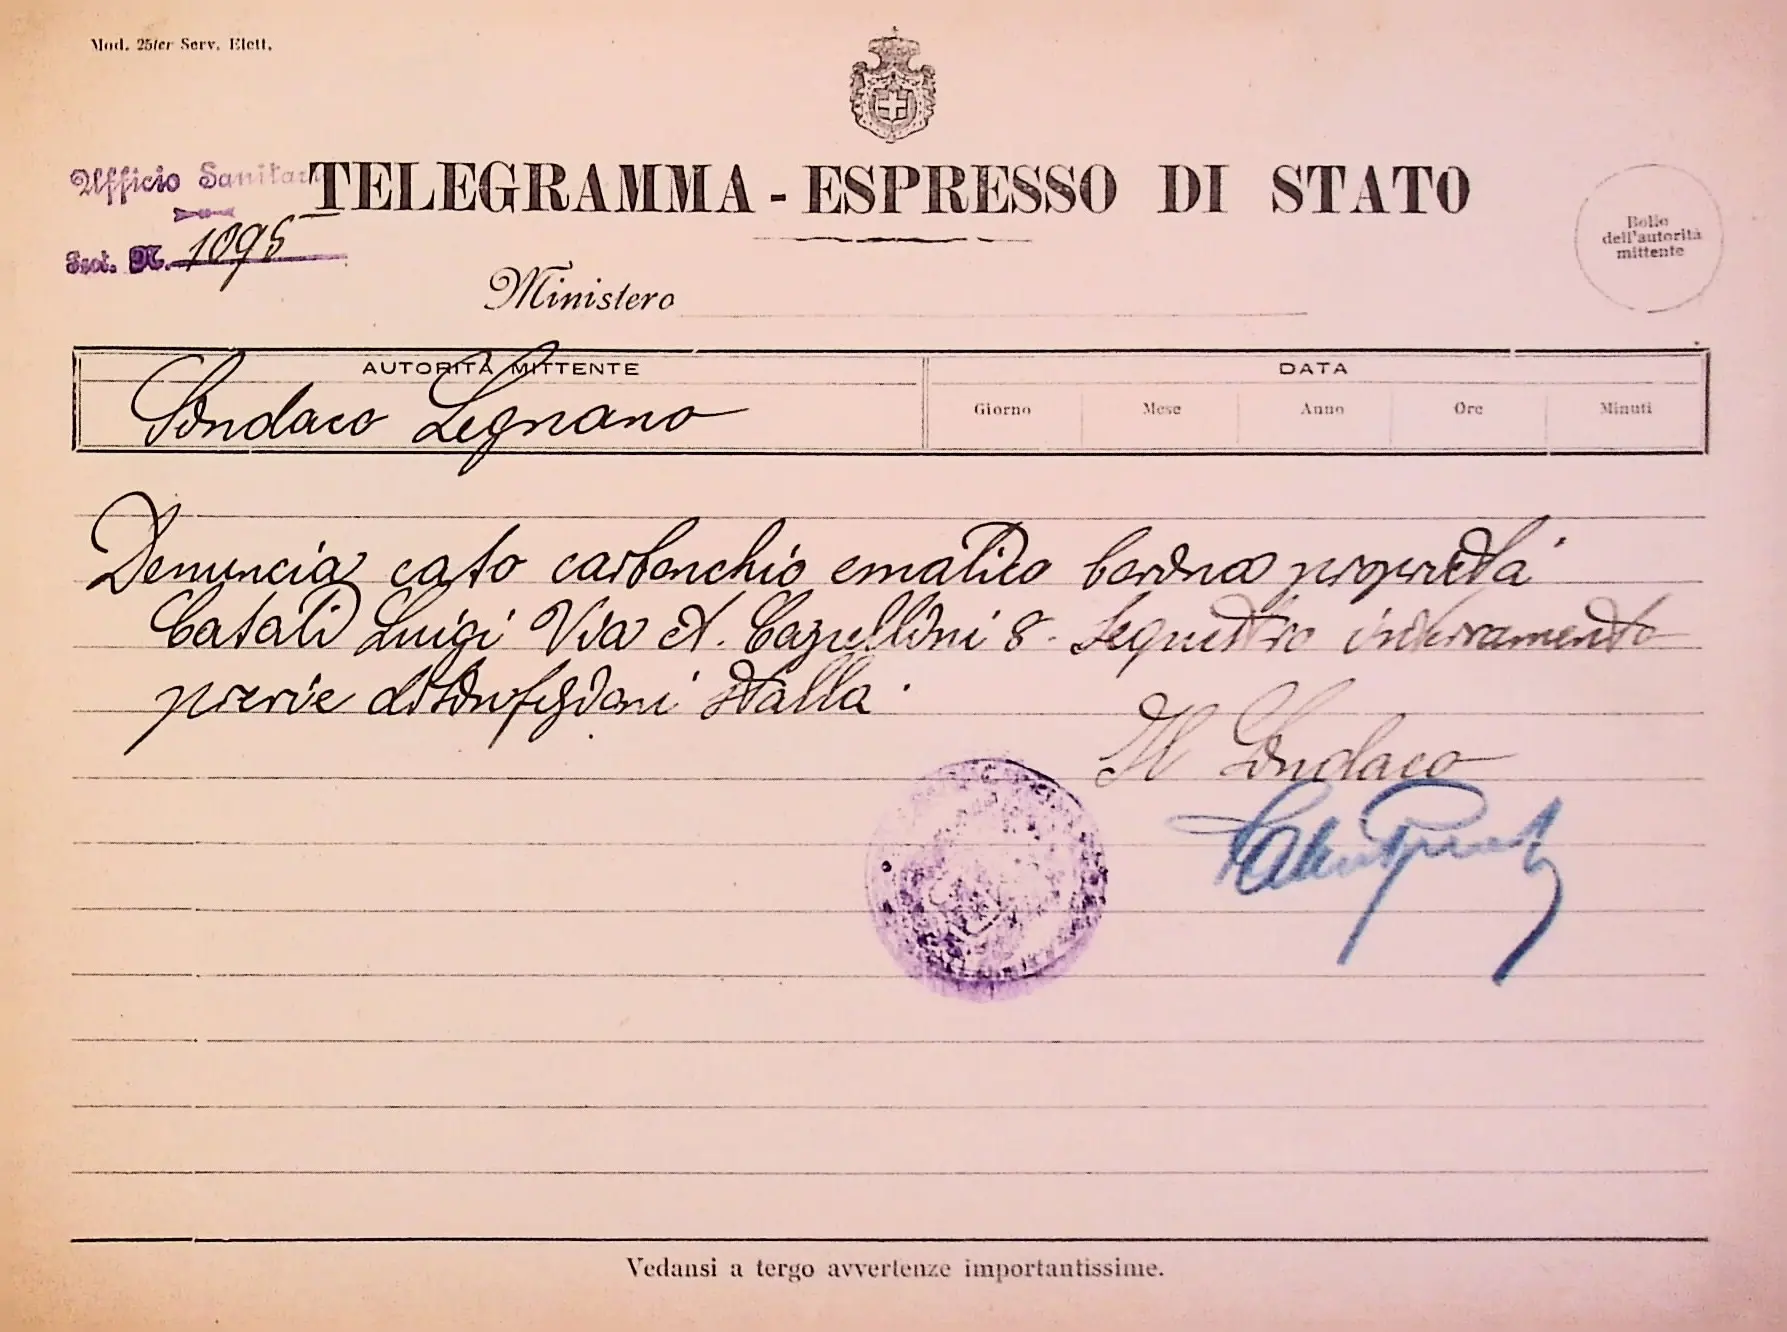 Mod. 25ter Serv. Elett.
Ufficio Sanitario
TELEGRAMMA - ESPRESSO DI STATO
Prot. N. 1095
Bollo
dell'autorità
mittente
Ministero
AUTORITÀ MITTENTE
DATA
Sindaco Legnano
Giorno Mese Anno Ore Minuti
Denuncia caso carbonchio ematico bovina proprietà
Casati Luigi Via 8. Sequestro interramento
previe disinfezioni stalla.
Il Sindaco
Vedansi a tergo avvertenze importantissime.